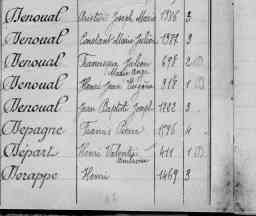 Denoual Aristide Joseph Marie 1736 3
Denoual Constant Marie Julien 1377 3
Denoual Francisque Julien 698 2
Marie Ange
Denoual Henri Jean Eugène 818 1
Denoual Jean Baptiste Joseph 1282 3
Depagne Francis Pierre 1596 4
Départ Henri Valentin 411 1
Ambroise
Derappe Henri 1469 3